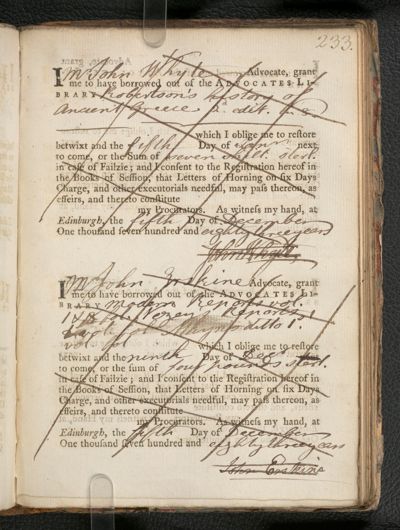 233.
I Mr John Whyte Advocate, grant
me to have borrowed out of the ADVOCATES LI-
BRARY Robertson's history of
Ancient Greece
which I oblige me to restore
betwixt and the fifth Day of next
to come, or the Sum of seven shill. sterl.
in case of Failzie; and I consent to the Registration hereof in
the Books of Session, that Letters of Horning on six Days
Charge, and other executorials needful, may pass thereon, as
effeirs, and thereto constitute
my Procurators. As witness my hand, at
Edinburgh, the fifth Day of December
One thousand seven hundred and eighty three years
John Whyte
I Mr John Erskine Advocate, grant
me to have borrowed out of the ADVOCATES LI-
BRARY Modern Reports vol.
Reports
which I oblige me to restore
betwixt and the ninth Day of Decr
to come, or the sum of four pounds sterl.
in case of Failzie; and I consent to the Registration hereof in
the Books of Session, that Letters of Horning on six Days
Charge, and other executorials needful, may pass thereon, as
effeirs, and thereto constitute
my Procurators. As witness my hand, at
Edinburgh, the fifth Day of December
One thousand seven hundred and eighty three years
John Erskine